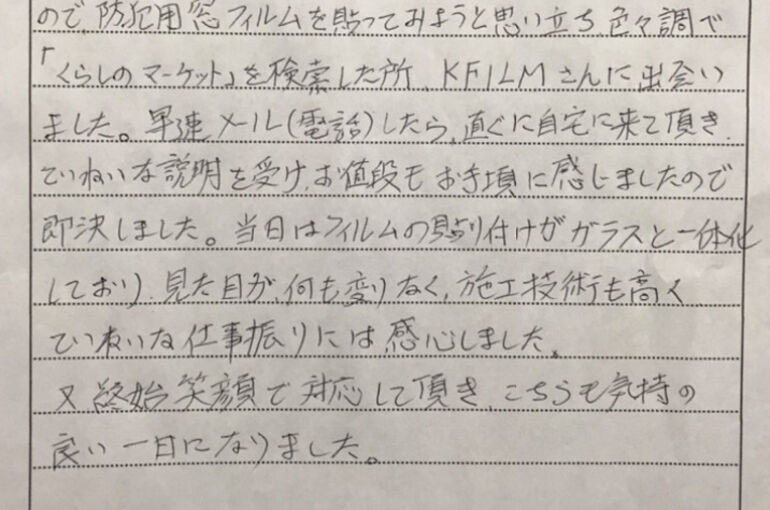 ので、防犯用窓フィルムを貼ってみようと思い立ち、色々調べ
「くらしのマーケット」を検索した所、KFILMさんに出会い
ました。早速メール(電話)したら、直ぐに自宅に来て頂き、
ていねいな説明を受け、お値段もお手頃に感じましたので
即決しました。当日はフィルムの貼り付けがガラスと一体化
しており、見た目が、何も変りなく、施工技術も高く
ていねいな仕事振りには感心しました。
又終始笑顔で対応して頂き、こちらも気持の
良い一日になりました。